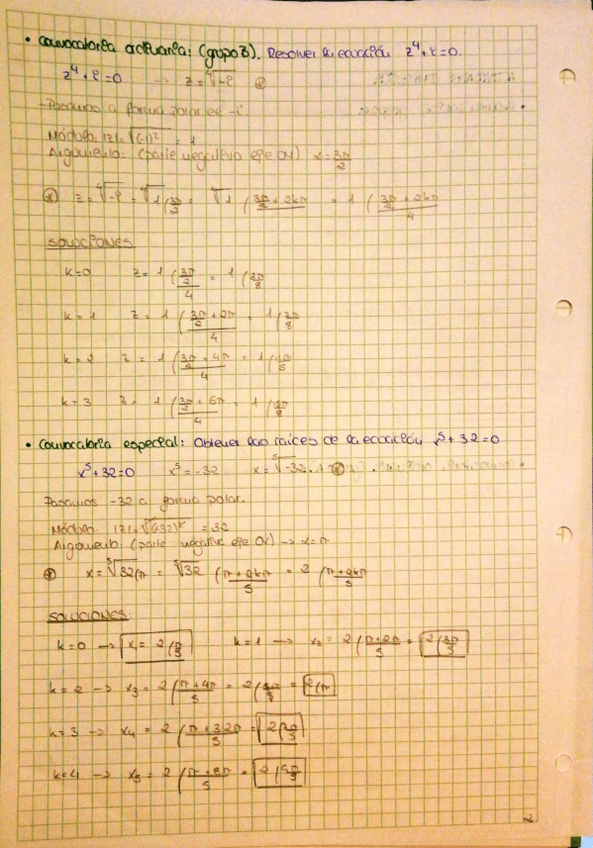 • Convocatoria ordinaria: (grupo B). Resolver la ecuación z⁴ + i = 0.
z⁴ + i = 0 → z = ⁴√-i ⊛
- Pasamos a forma polar el -i.
Módulo: |z| = √(-1)² = 1
Argumento: (parte negativa eje OY) α = 3π/2
⊛ z = ⁴√-i = ⁴√1 (3π/2 = ⁴√1 (3π/2 + 2kπ = 1 (3π/2 + 2kπ / 4
SOLUCIONES
k=0 z = 1 (3π/2 / 4 = 1 (3π/8
k=1 z = 1 (3π/2 + 2π / 4 = 1 (7π/8
k=2 z = 1 (3π/2 + 4π / 4 = 1
k=3 z = 1 (3π/2 + 6π / 4 = 1
• Convocatoria especial: Obtener las raíces de la ecuación x⁵ + 32 = 0
x⁵ + 32 = 0 x⁵ = -32 x = ⁵√-32 ⊛
Pasamos -32 a forma polar.
Módulo: |z| = √(-32)² = 32
Argumento: (parte negativa eje OX) → α = π
⊛ x = ⁵√32 (π = ⁵√32 (π + 2kπ / 5 = 2 (π + 2kπ / 5
SOLUCIONES
k=0 → x₁ = 2 (π/5 k=1 → x₂ = 2 (π + 2π / 5 = 2 (3π/5
k=2 → x₃ = 2 (π + 4π / 5 = 2 (5π/5 = 2 (π
k=3 → x₄ = 2 (π + 3·2π / 5 = 2 (7π/5
k=4 → x₅ = 2 (π + 8π / 5 = 2 (9π/5
2